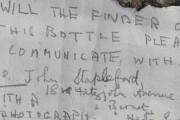 WILL THE FINDER O
THIS BOTTLE PLEA
COMMUNICATE, WITH
John Stapleford
18 Avenue
ITH A
PHOTOGRAPH